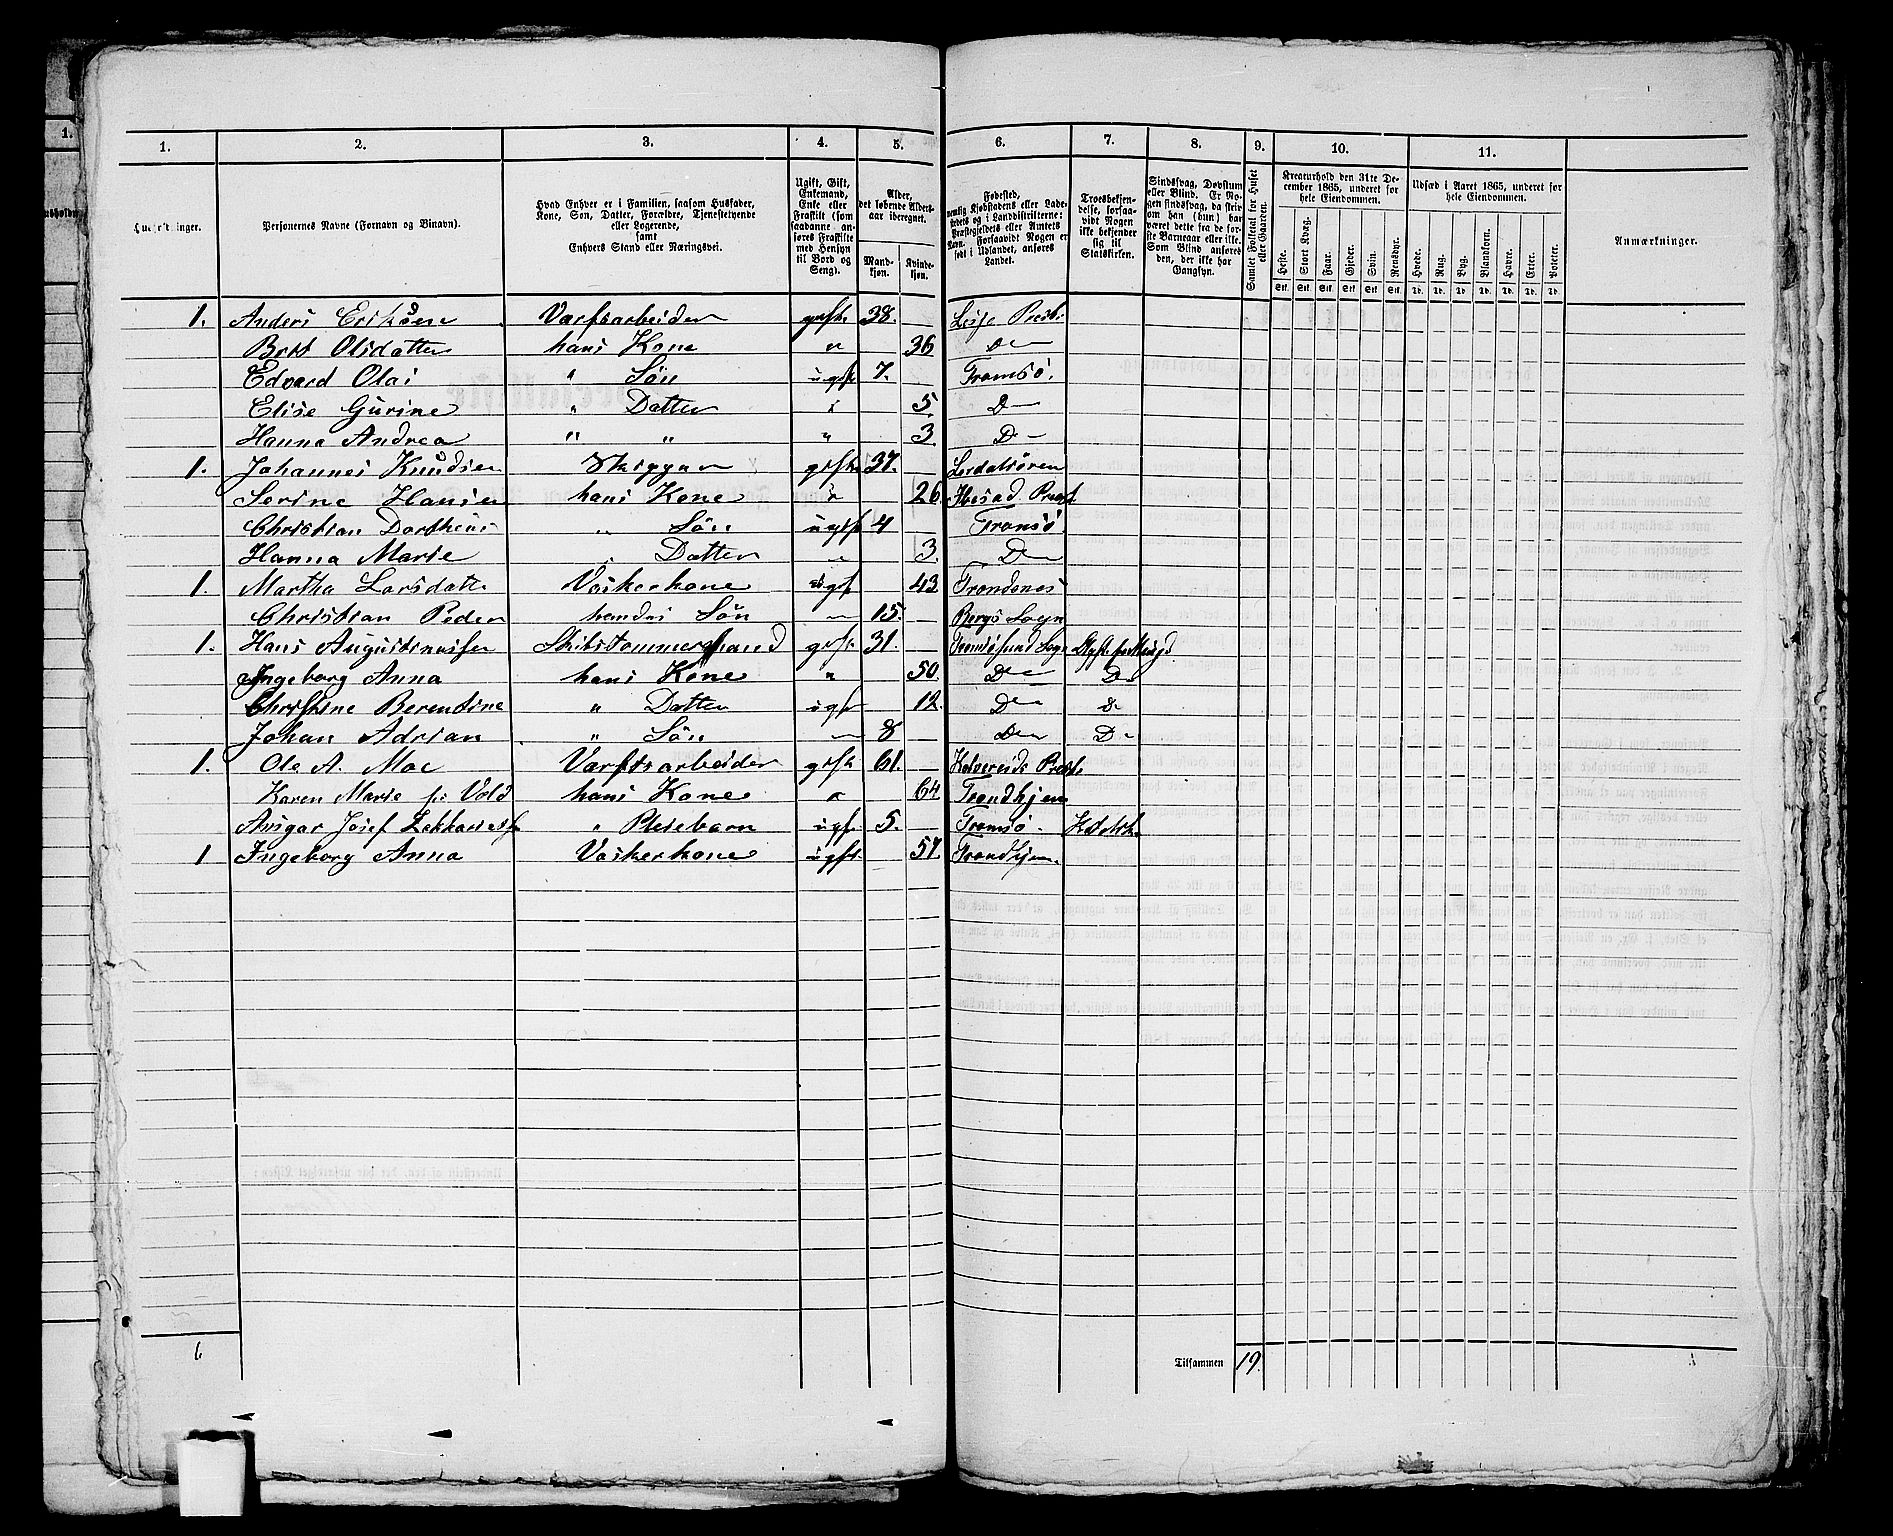 1. 2. 3. 4. 5. 6. 7. 8. 9. 10. 11.
Personernes Navne (Fornavn og Binavn).
Hvad Enhver er i Familien, saasom Husfader,
Kone, Søn, Datter, Forældre, Tjenestetyende
eller Logerende,
samt
Enhvers Stand eller Næringsvei.
Ugift, Gift,
Enkemand,
Enke eller
Fraskilt (som
saadanne an-
føres Fraskilte
med Hensyn
til Bord og
Seng).
Alder,
det løbende Alders-
aar iberegnet.
Mand-
kjøn.
Kvinde-
kjøn.
Fødested,
nemlig Kjøbstadens eller Lade-
stedets og i Landdistrikterne:
Præstegjeldets eller Amtets
Navn. Forsaavidt Nogen er
født i Udlandet, anføres
Landet.
Troesbekjen-
delse, forsaa-
vidt Nogen
ikke bekjender
sig til
Statskirken.
Sindssvag, Døvstum
eller Blind. Er No-
gen sindssvag, da skriv
om han (hun) har
været dette fra de før-
ste Barneaar eller ikke.
Som Blind anføres
den, der ikke har
Gangsyn.
Samlet Folketal for Huset
eller Gaarden.
Kreaturhold den 31te De-
cember 1865, underet for
hele Eiendommen.
Heste. Stort Kvæg. Faar. Gjeder. Svin. Rensdyr.
Stk. Stk. Stk. Stk. Stk. Stk.
Udsæd i Aaret 1865, underet for
hele Eiendommen.
Hvede. Rug. Byg. Blandkorn. Havre. Erter. Poteter.
Td. Td. Td. Td. Td. Td. Td.
Anmærkninger.
1. Anders Eriksen Varfsarbeider gift 38.
Brit Olsdatter hans Kone " 36 Do
Edvard Olai " Søn ugift 7. Tromsö.
Elise Gurine " Datter " 5 Do
Hanna Andrea " " " 3 Do
1. Johannes Knudsen Skipper gift 37. Lerdalsören
Serine Hansen hans Kone " 26 Ibestad Præst
Christian Dortheus " Søn ugift 4 Tromsö
Hanna Marie " Datter " 3. Do
1. Martha Larsdatter Vaskerkone ugift 43 Trondenes
Christian Peder hendes Søn " 15. Bergs Sogn
1. Hans Augustinusen Skibstømmermand gift 31. Tromsösund Sogn
Ingeborg Anna hans Kone " 50. Do Do
Christine Berendine " Datter ugift 12. Do Do
Johan Adrian " Søn " 8 Do Do
1. Ole A. Moe Varfsarbeider gift 61. Kolvereids Præst
Karen Marie f: Vold hans Kone " 64 Trondhjem
Ansgar Josef " Pleiebarn ugift 5. Tromsö. Katolsk
1 Ingeborg Anna Vaskerkone ugift 57. Trondhjem
6
Tilsammen 19.